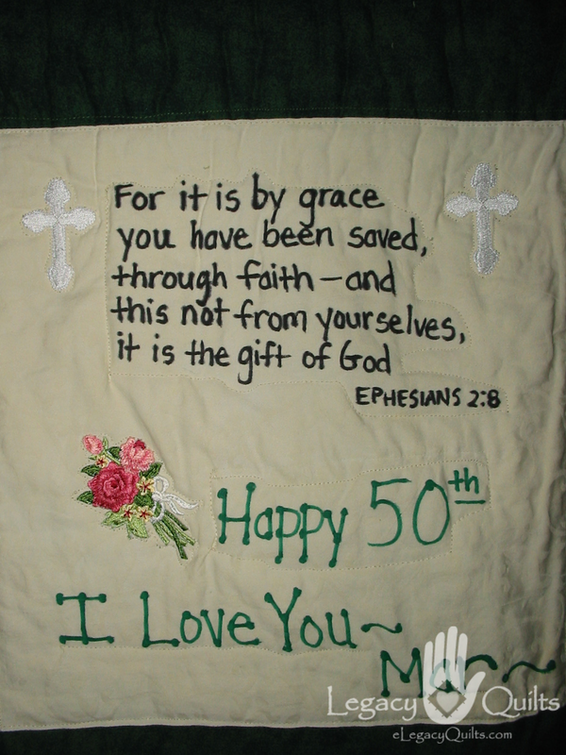 For it is by grace
you have been saved,
through faith – and
this not from yourselves,
it is the gift of God
EPHESIANS 2:8
Happy 50th
I Love You ~
Legacy Quilts
eLegacyQuilts.com